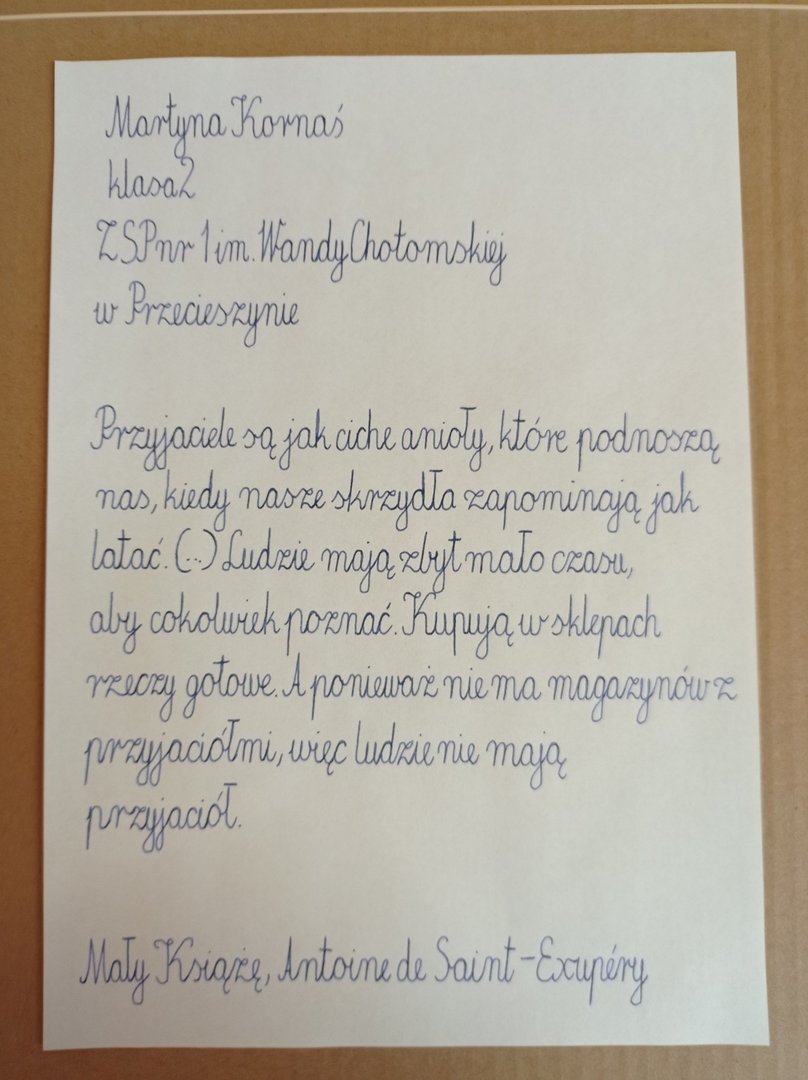 Martyna Kornaś
klasa 2
ZSP nr 1 im. Wandy Chotomskiej
w Przecieszynie
Przyjaciele są jak ciche anioły, które podnoszą
nas, kiedy nasze skrzydła zapominają jak
latać. (...) Ludzie mają zbyt mało czasu,
aby cokolwiek poznać. Kupują w sklepach
rzeczy gotowe. A ponieważ nie ma magazynów z
przyjaciółmi, więc ludzie nie mają
przyjaciół.
Mały Książę, Antoine de Saint-Exupéry